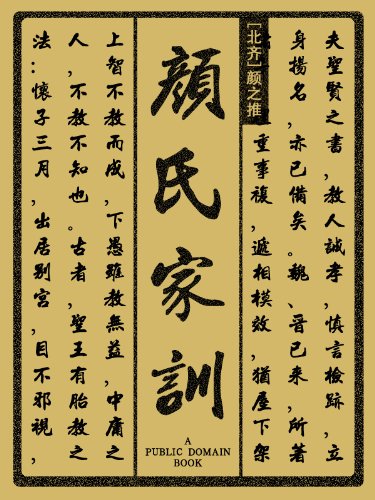 夫聖賢之書，教人誠孝，慎言檢跡，立
身揚名，亦已備矣。魏、晉已來，所著
重事複，遞相模效，猶屋下架
[北齐]颜之推
顏氏家訓
A
PUBLIC DOMAIN
BOOK
上智不教而成，下愚雖教無益，中庸之
人，不教不知也。古者，聖王有胎教之
法：懷子三月，出居别宮，目不邪視，